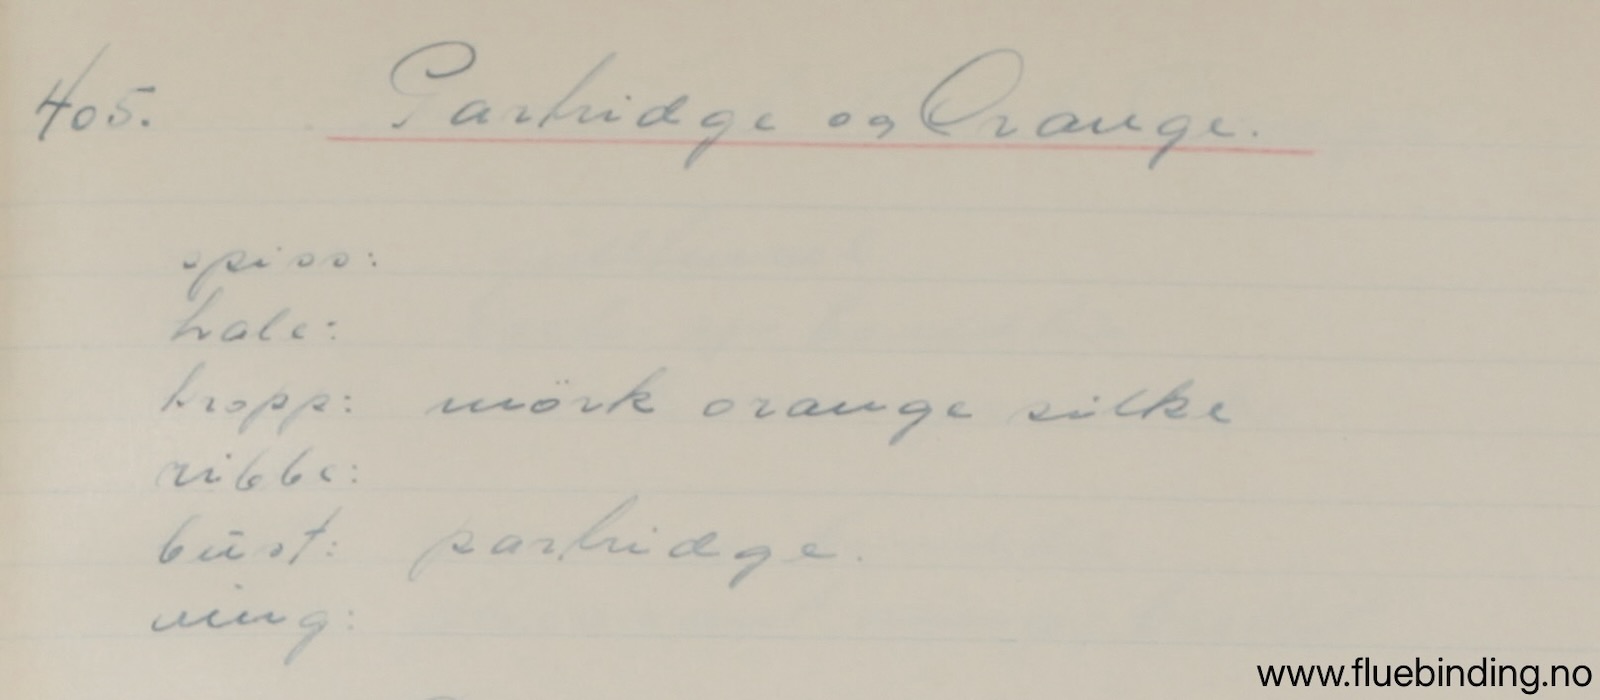 405. Partridge og Orange.
spiss:
hale:
kropp: mörk orange silke
ribbe:
büst: partridge.
ving:
www.fluebinding.no